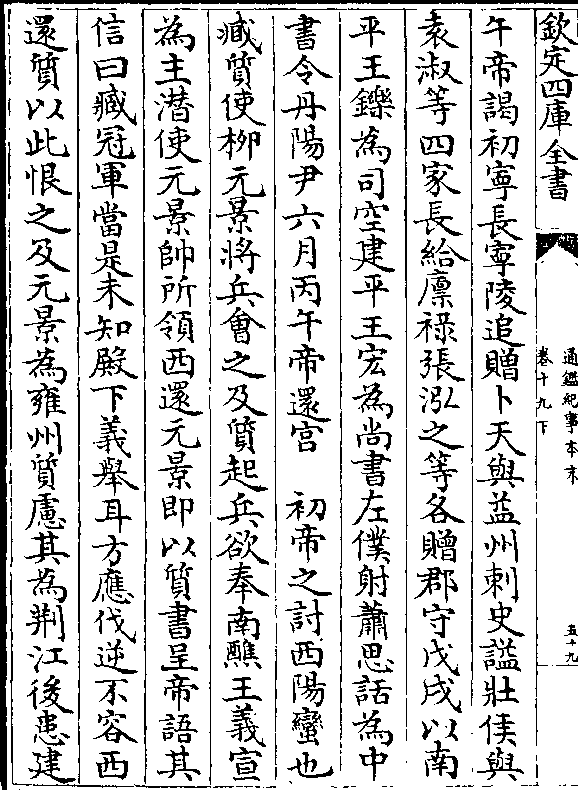 欽定四庫全書
通鑑紀事本末
卷十九下
五十九
午帝謁初寧長寧陵追贈卜天與益州刺史謚壯侯與
袁淑等四家長給廩祿張泓之等各贈郡守戊戌以南
平王鑠為司空建平王宏為尚書左僕射蕭思話為中
書令丹陽尹六月丙午帝還宮　初帝之討西陽蠻也
臧質使柳元景將兵會之及質起兵欲奉南譙王義宣
為主潛使元景帥所領西還元景即以質書呈帝語其
信曰臧冠軍當是未知殿下義舉耳方應伐逆不容西
還質以此恨之及元景為雍州質慮其為荆江後患建